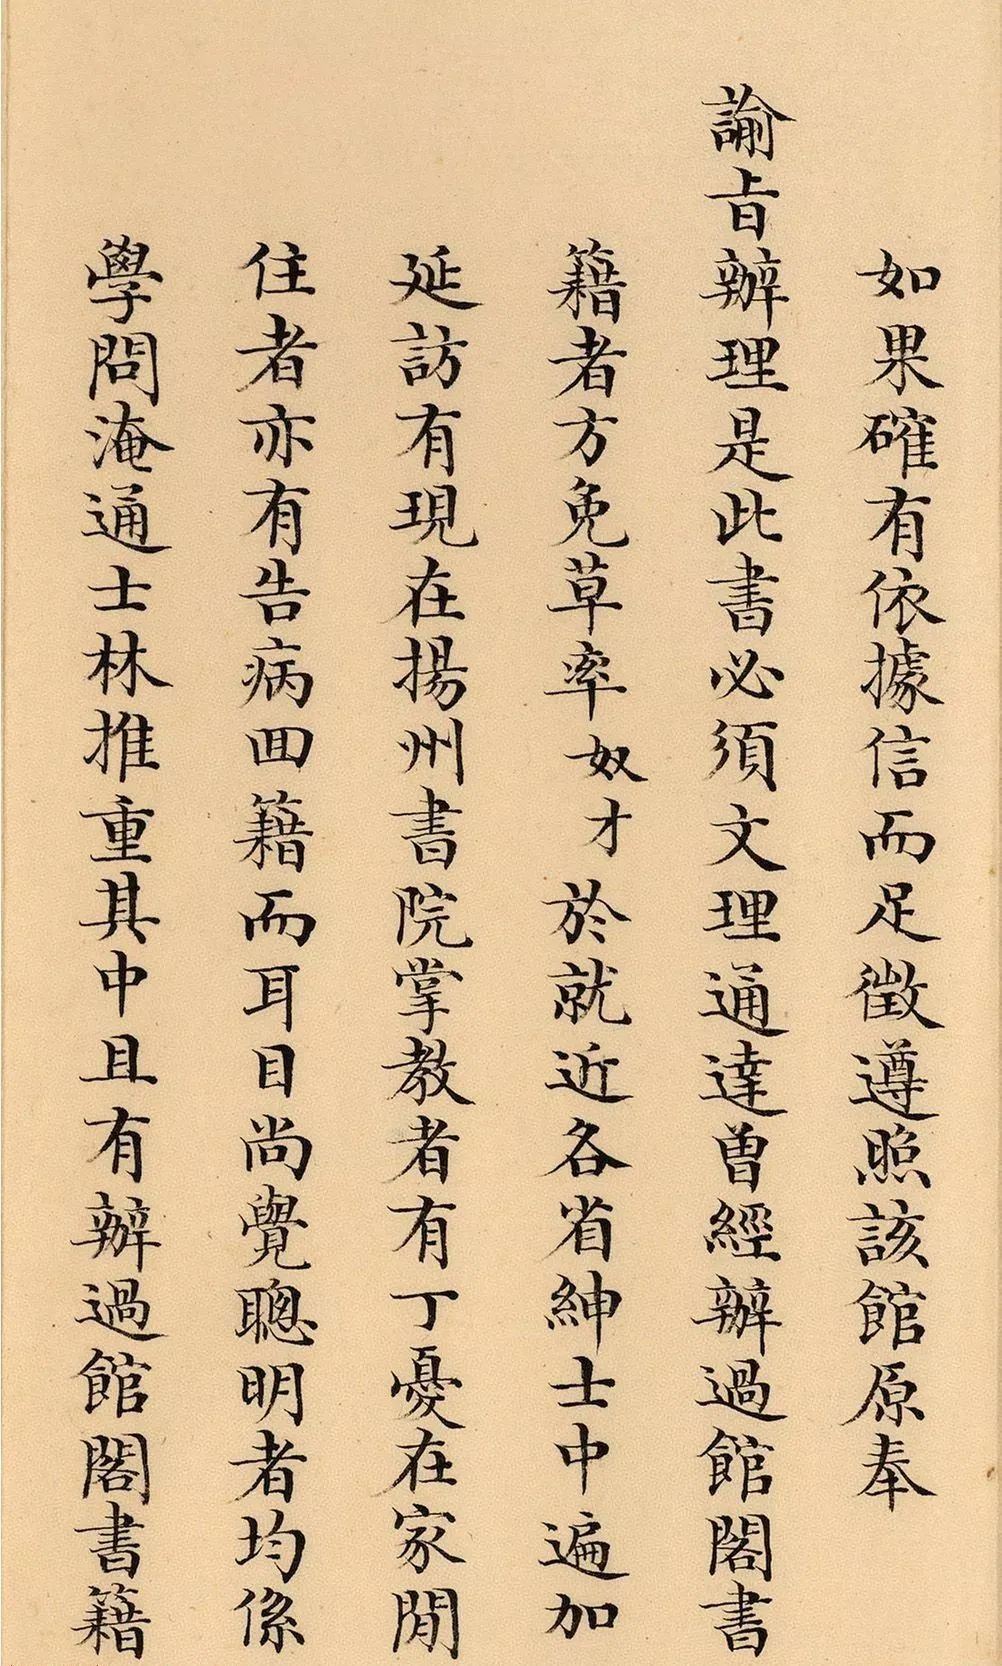 如果確有依據信而足徵遵照該館原奉
諭旨辦理是此書必須文理通達曾經辦過館閣書
籍者方免草率奴才於就近各省紳士中遍加
延訪有現在揚州書院掌教者有丁憂在家閒
住者亦有告病回籍而耳目尚覺聰明者均係
學問淹通士林推重其中且有辦過館閣書籍